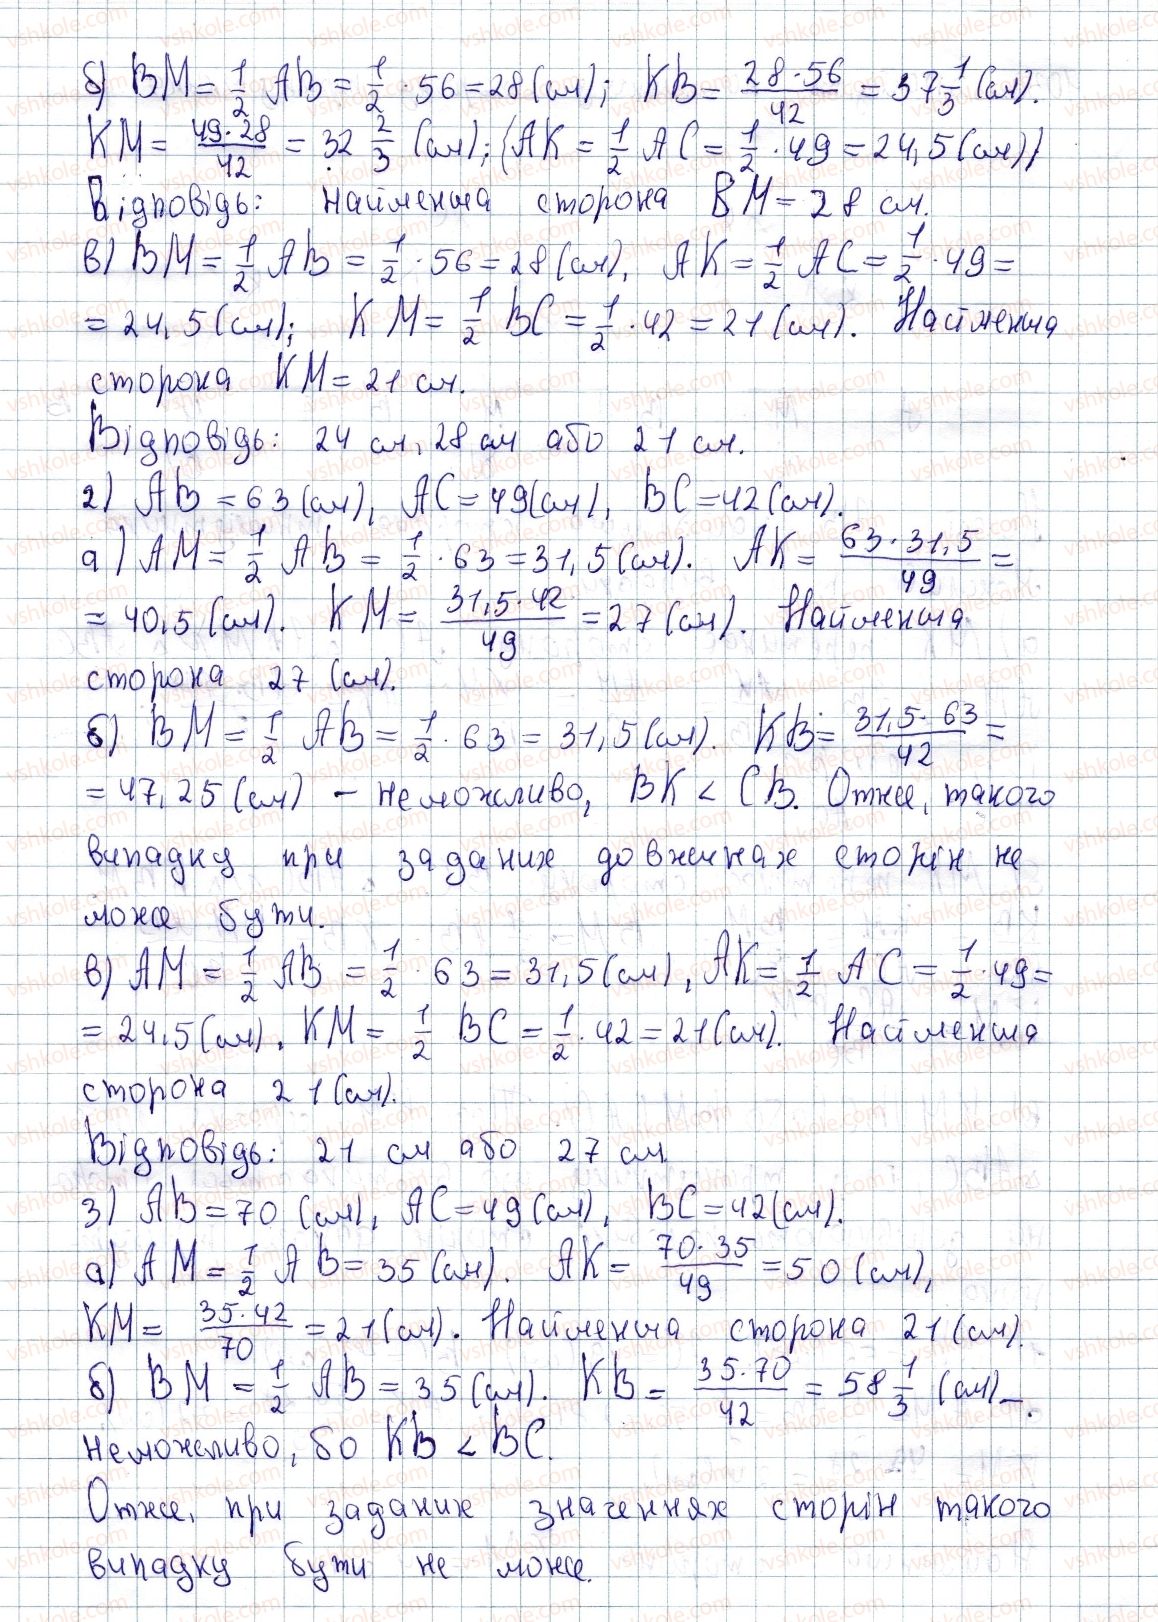 б) BM = 1/2 AB = 1/2 · 56 = 28 (см); KB = 28·56/42 = 37 1/3 (см).
KM = 49·28/42 = 32 2/3 (см); (AK = 1/2 AC = 1/2 · 49 = 24,5 (см))
Відповідь: найменша сторона BM = 28 см.
в) BM = 1/2 AB = 1/2 · 56 = 28 (см), AK = 1/2 AC = 1/2 · 49 =
= 24,5 (см); KM = 1/2 BC = 1/2 · 42 = 21 (см). Найменша
сторона KM = 21 см.
Відповідь: 24 см, 28 см або 21 см.
2) AB = 63 (см), AC = 49 (см), BC = 42 (см).
а) AM = 1/2 AB = 1/2 · 63 = 31,5 (см). AK = 63·31,5/49 =
= 40,5 (см). KM = 31,5·42/49 = 27 (см). Найменша
сторона 27 (см).
б) BM = 1/2 AB = 1/2 · 63 = 31,5 (см). KB = 31,5·63/42 =
= 47,25 (см) – неможливо, BK < CB. Отже, такого
випадку при заданих довжинах сторін не
може бути.
в) AM = 1/2 AB = 1/2 · 63 = 31,5 (см), AK = 1/2 AC = 1/2 · 49 =
= 24,5 (см), KM = 1/2 BC = 1/2 · 42 = 21 (см). Найменша
сторона 21 (см).
Відповідь: 21 см або 27 см.
3) AB = 70 (см), AC = 49 (см), BC = 42 (см).
а) AM = 1/2 AB = 35 (см). AK = 70·35/49 = 50 (см),
KM = 35·42/70 = 21 (см). Найменша сторона 21 (см).
б) BM = 1/2 AB = 35 (см). KB = 35·70/42 = 58 1/3 (см) –
неможливо, бо KB < BC.
Отже, при заданих значеннях сторін такого
випадку бути не може.